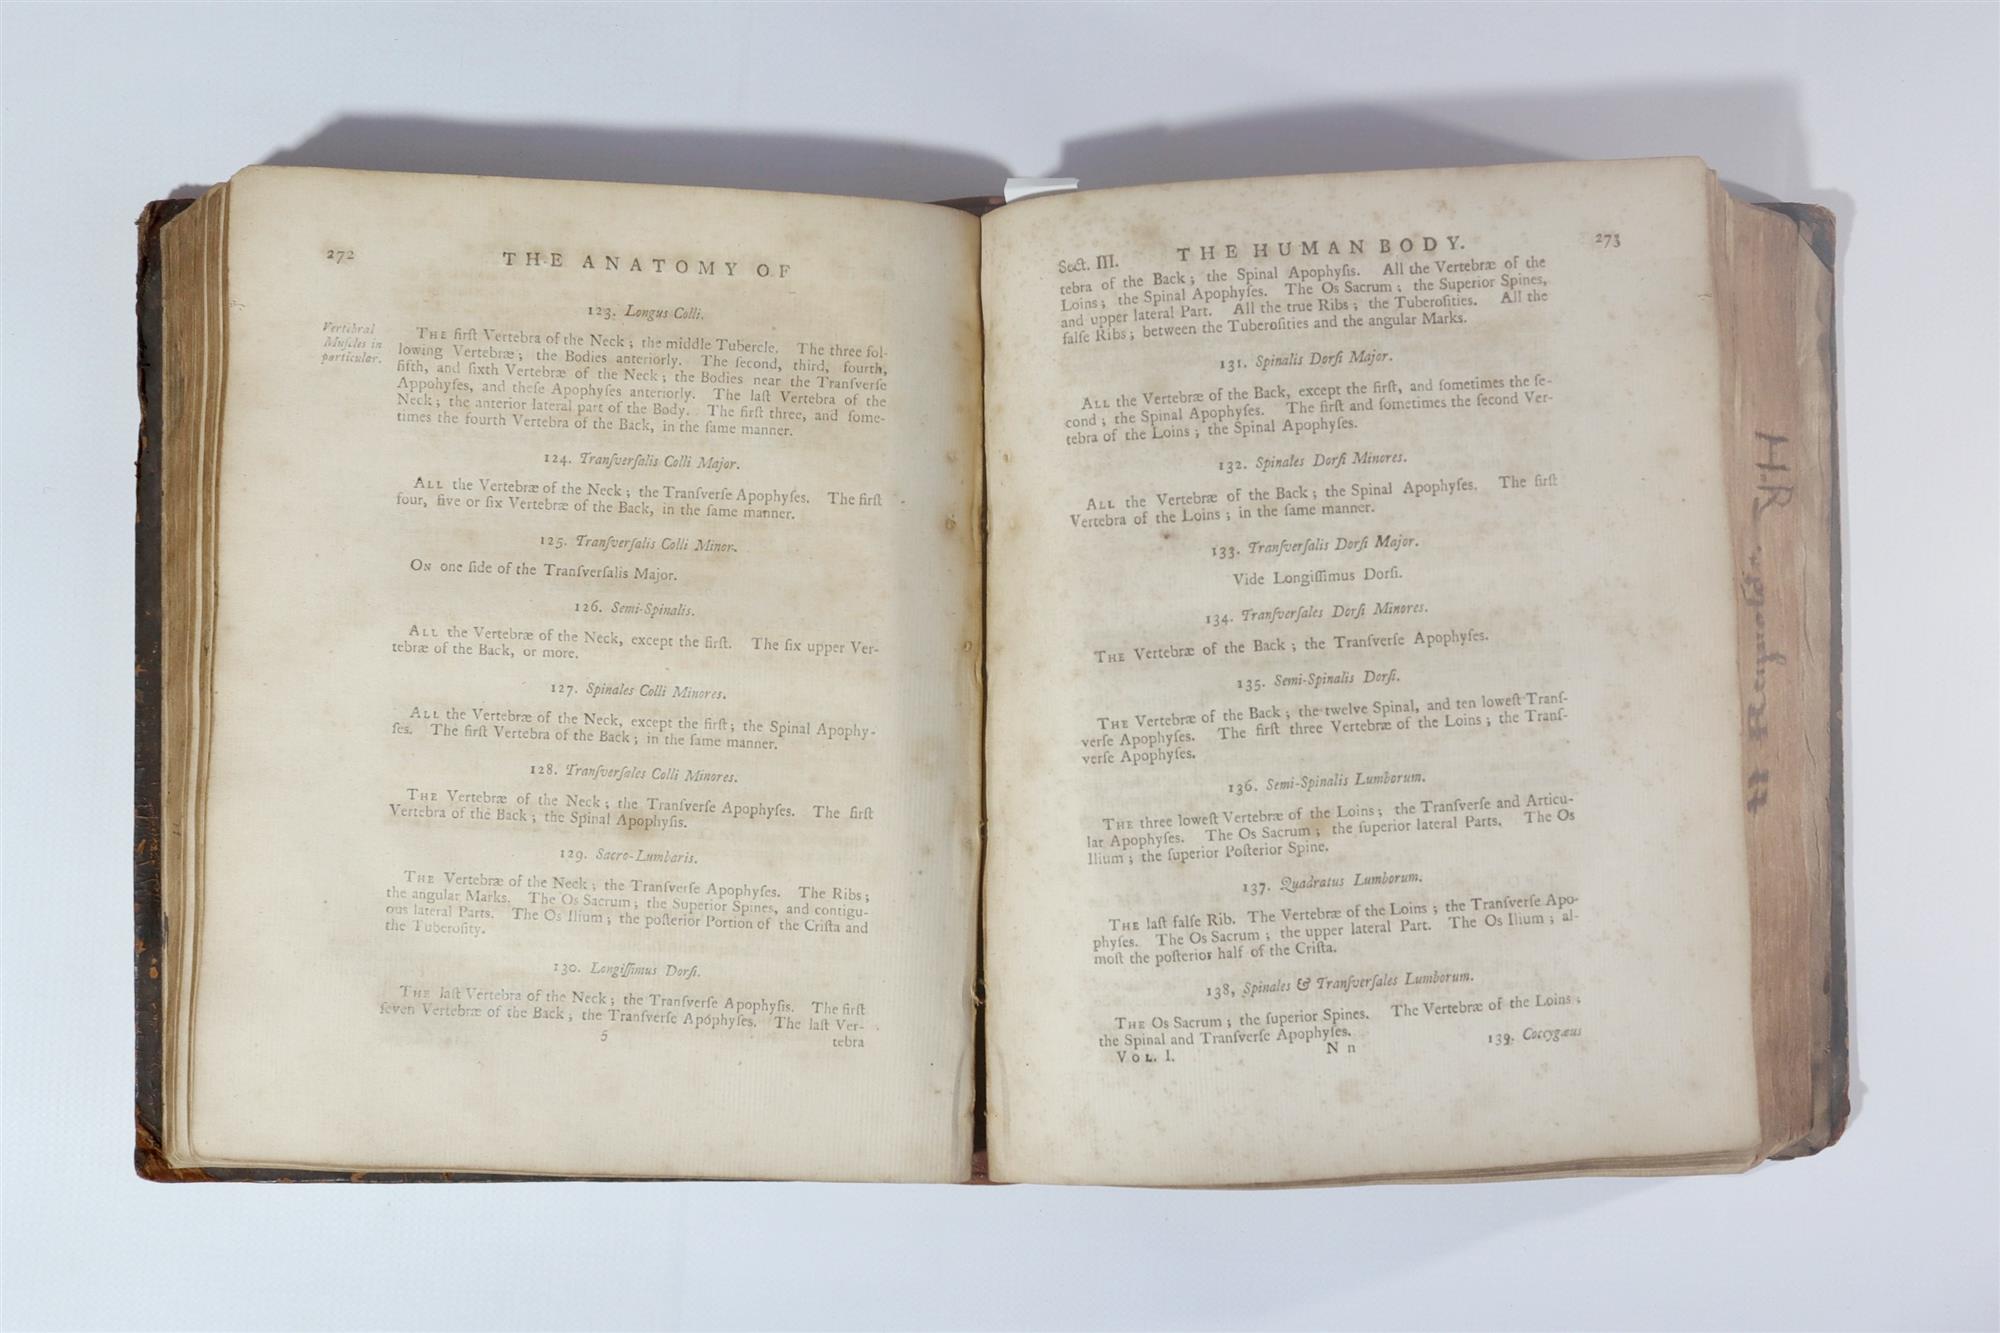 272
THE ANATOMY OF
123. Longus Colli.
Vertebral
Muſcles in
particular.
THE firſt Vertebra of the Neck; the middle Tubercle. The three fol-
lowing Vertebræ; the Bodies anteriorly. The ſecond, third, fourth,
fifth, and ſixth Vertebræ of the Neck; the Bodies near the Tranſverſe
Appohyſes, and theſe Apophyſes anteriorly. The laſt Vertebra of the
Neck; the anterior lateral part of the Body. The firſt three, and ſome-
times the fourth Vertebra of the Back, in the ſame manner.
124. Tranſverſalis Colli Major.
ALL the Vertebræ of the Neck; the Tranſverſe Apophyſes. The firſt
four, five or ſix Vertebræ of the Back, in the ſame manner.
125. Tranſverſalis Colli Minor.
ON one ſide of the Tranſverſalis Major.
126. Semi-Spinalis.
ALL the Vertebræ of the Neck, except the firſt. The ſix upper Ver-
tebræ of the Back, or more.
127. Spinales Colli Minores.
ALL the Vertebræ of the Neck, except the firſt; the Spinal Apophy-
ſes. The firſt Vertebra of the Back; in the ſame manner.
128. Tranſverſales Colli Minores.
THE Vertebræ of the Neck; the Tranſverſe Apophyſes. The firſt
Vertebra of the Back; the Spinal Apophyſis.
129. Sacro-Lumbaris.
THE Vertebræ of the Neck; the Tranſverſe Apophyſes. The Ribs;
the angular Marks. The Os Sacrum; the Superior Spines, and contigu-
ous lateral Parts. The Os Ilium; the poſterior Portion of the Criſta and
the Tuberoſity.
130. Longiſſimus Dorſi.
THE laſt Vertebra of the Neck; the Tranſverſe Apophyſis. The firſt
ſeven Vertebræ of the Back; the Tranſverſe Apophyſes. The laſt Ver-
5
tebra
Sect. III.
THE HUMAN BODY.
273
tebra of the Back; the Spinal Apophyſis. All the Vertebræ of the
Loins; the Spinal Apophyſes. The Os Sacrum; the Superior Spines,
and upper lateral Part. All the true Ribs; the Tuberoſities. All the
falſe Ribs; between the Tuberoſities and the angular Marks.
131. Spinalis Dorſi Major.
ALL the Vertebræ of the Back, except the firſt, and ſometimes the ſe-
cond; the Spinal Apophyſes. The firſt and ſometimes the ſecond Ver-
tebra of the Loins; the Spinal Apophyſes.
132. Spinales Dorſi Minores.
ALL the Vertebræ of the Back; the Spinal Apophyſes. The firſt
Vertebra of the Loins; in the ſame manner.
133. Tranſverſalis Dorſi Major.
Vide Longiſſimus Dorſi.
134. Tranſverſales Dorſi Minores.
THE Vertebræ of the Back; the Tranſverſe Apophyſes.
135. Semi-Spinalis Dorſi.
THE Vertebræ of the Back; the twelve Spinal, and ten loweſt Tranſ-
verſe Apophyſes. The firſt three Vertebræ of the Loins; the Tranſ-
verſe Apophyſes.
136. Semi-Spinalis Lumborum.
THE three loweſt Vertebræ of the Loins; the Tranſverſe and Articu-
lar Apophyſes. The Os Sacrum; the ſuperior lateral Parts. The Os
Ilium; the ſuperior Poſterior Spine.
137. Quadratus Lumborum.
THE laſt falſe Rib. The Vertebræ of the Loins; the Tranſverſe Apo-
phyſes. The Os Sacrum; the upper lateral Part. The Os Ilium; al-
moſt the poſterior half of the Criſta.
138, Spinales & Tranſverſales Lumborum.
THE Os Sacrum; the ſuperior Spines. The Vertebræ of the Loins;
the Spinal and Tranſverſe Apophyſes.
VOL. I.
N n
139. Coccygæus
H Reynolds
HR